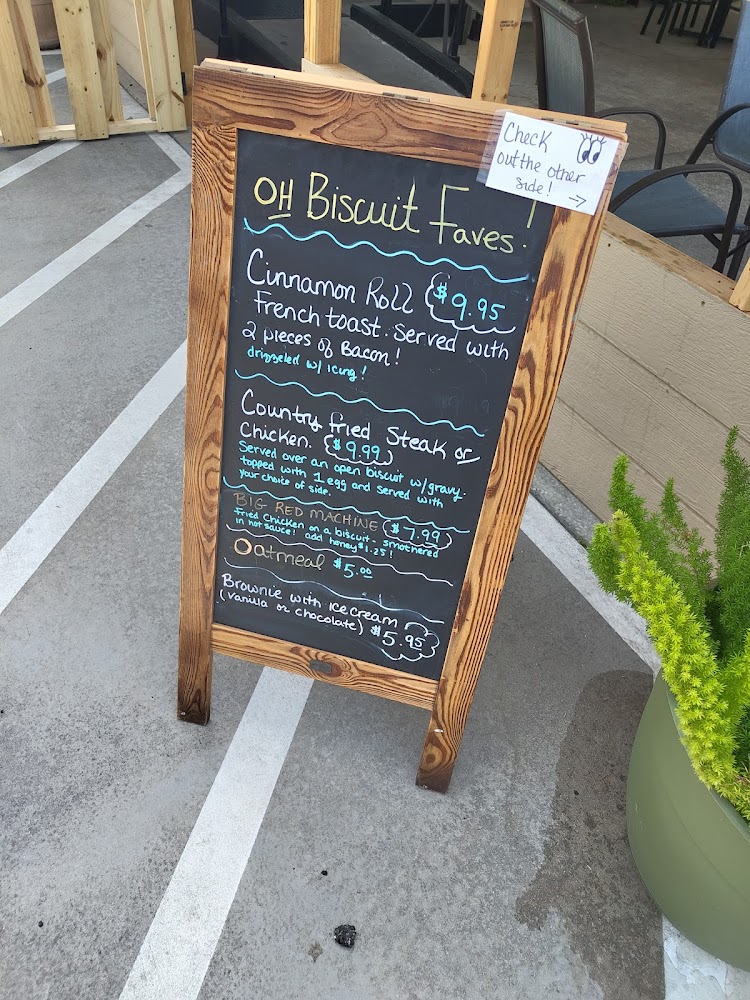 Check
out the other
side!
OH Biscuit Faves!
Cinnamon Roll $9.95
French toast. Served with
2 pieces of Bacon!
drizzeled w/ icing!
Country fried Steak or
Chicken. $9.99
Served over an open biscuit w/gravy.
topped with 1 egg and served with
your choice of side.
BIG RED MACHINE $7.99
Fried Chicken on a biscuit - smothered
in hot sauce! add honey $1.25!
Oatmeal $5.00
Brownie with ice cream
(vanilla or chocolate) $5.95